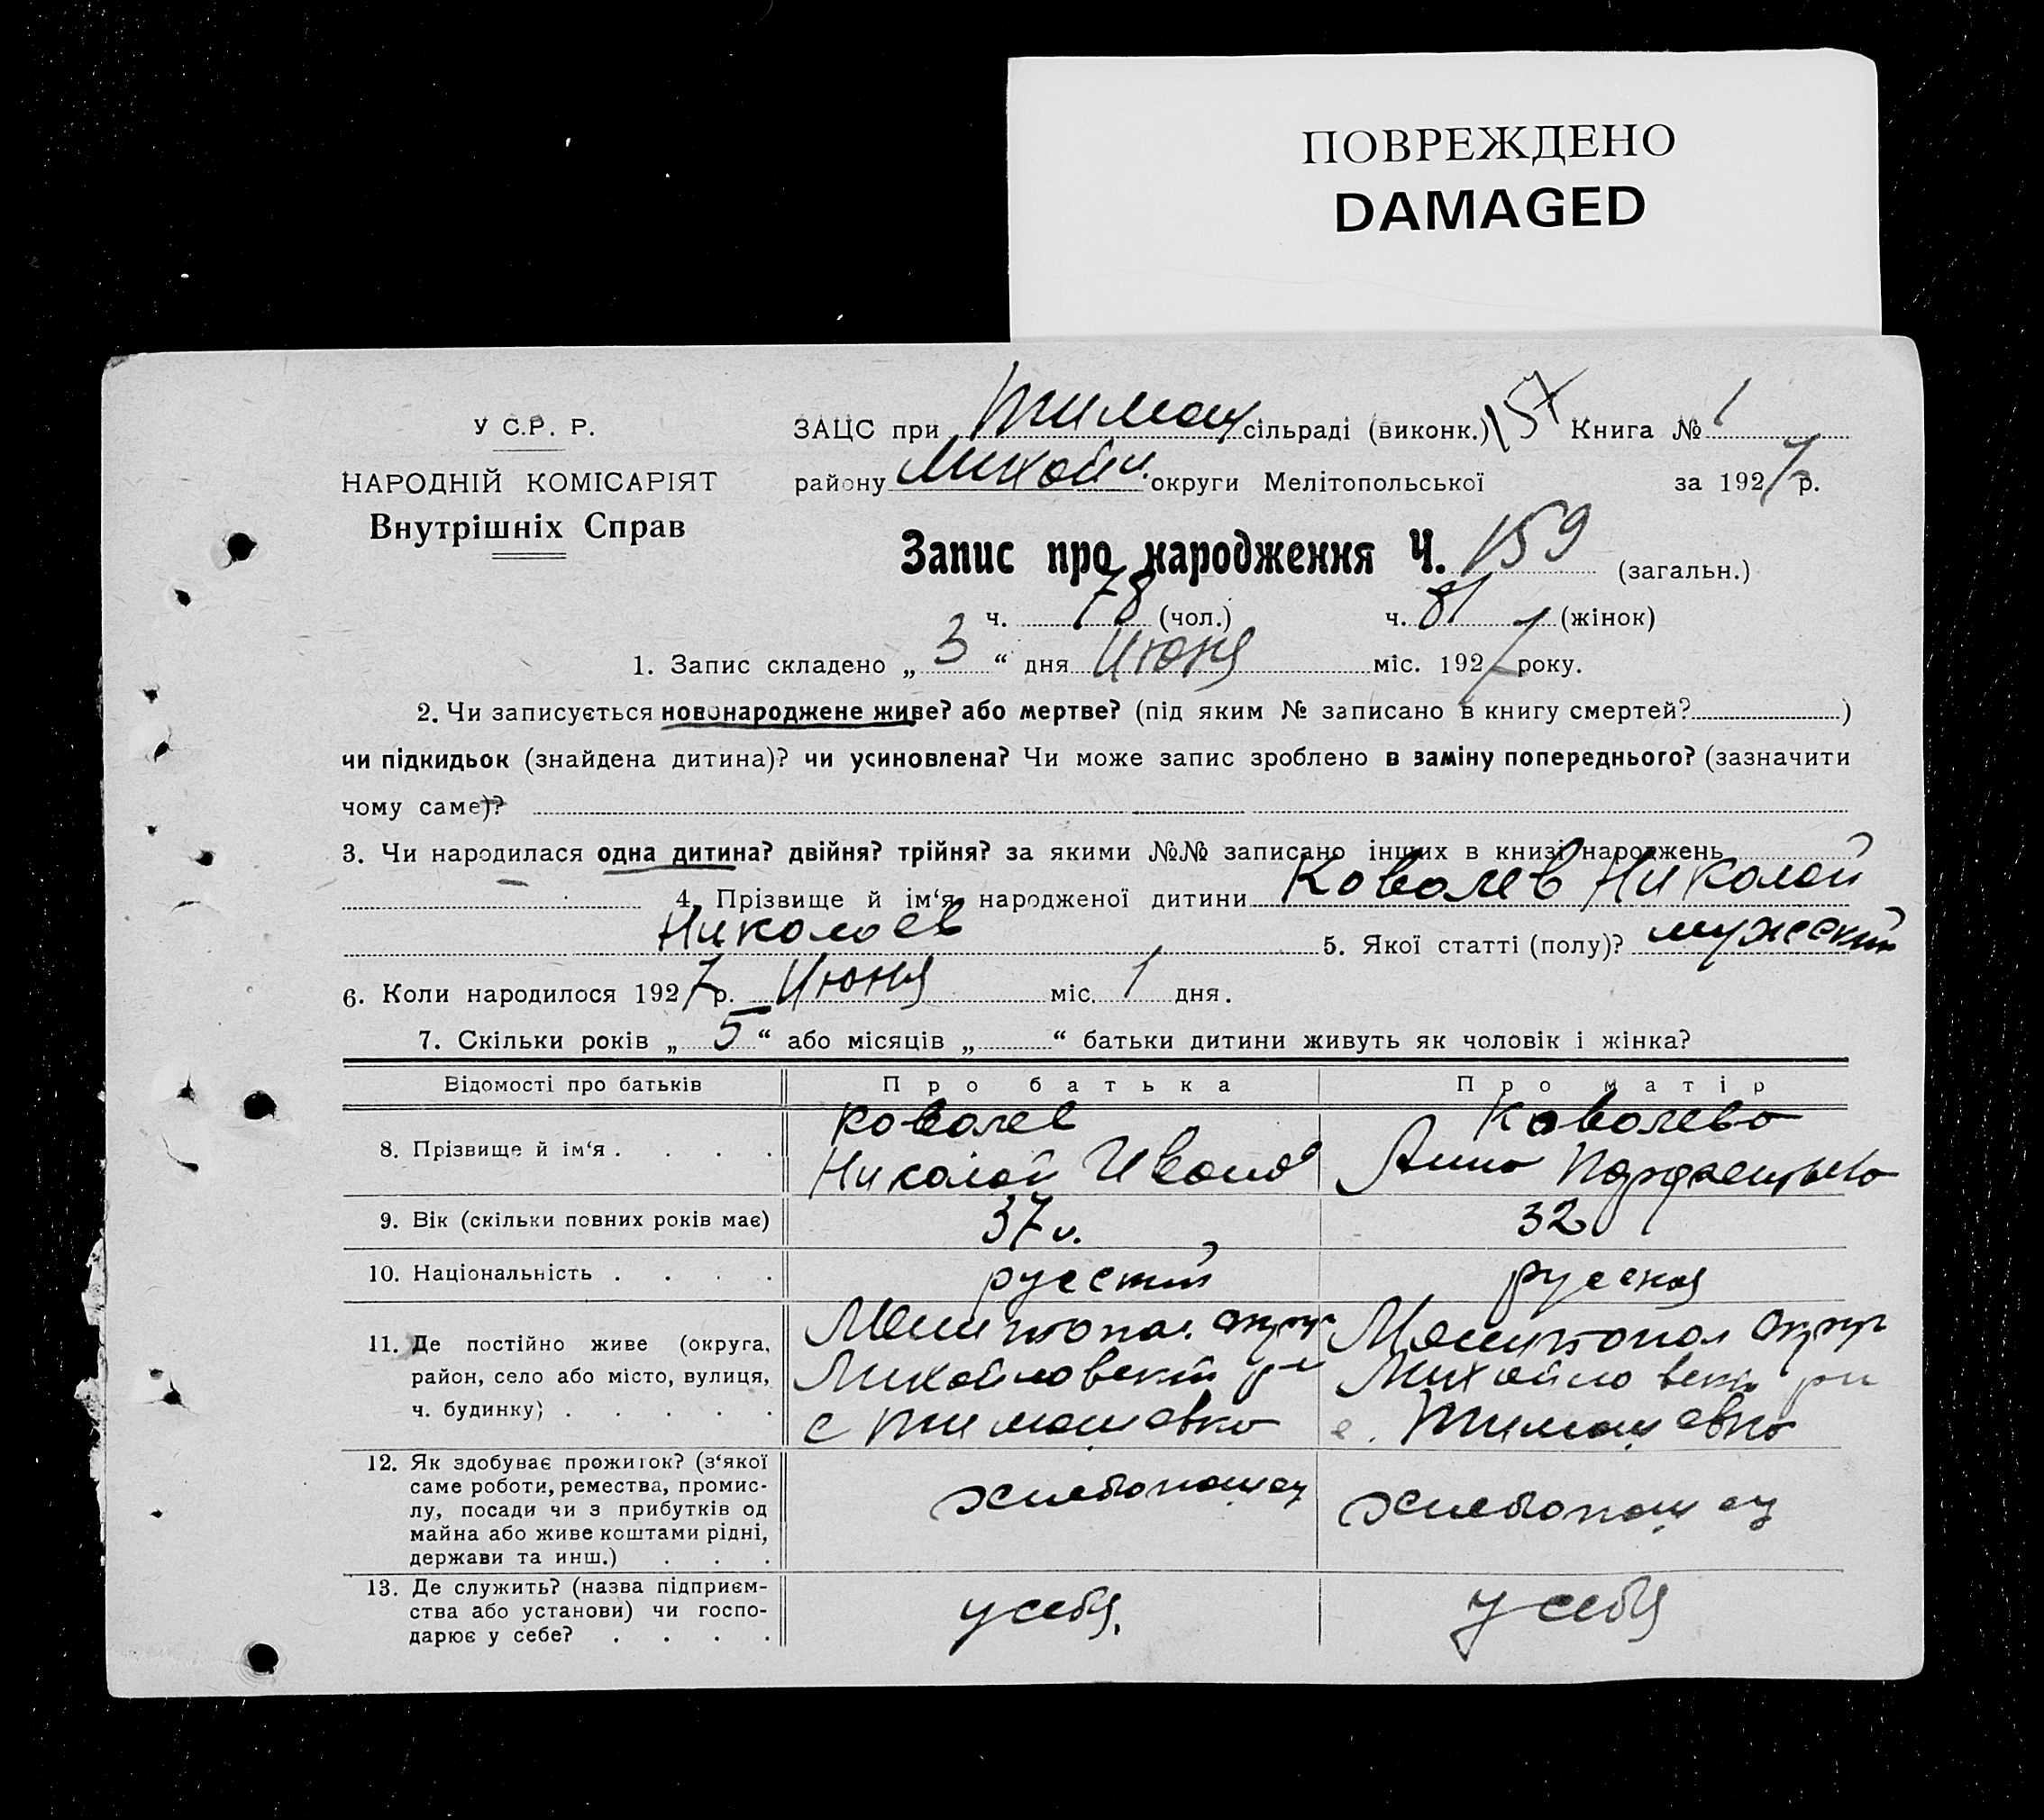 ПОВРЕЖДЕНО
DAMAGED
У С.Р. Р.
НАРОДНІЙ КОМІСАРІЯТ
Внутрішніх Справ
ЗАЦС при Тимош сільраді (виконк.) 157 Книга № 1
району Михайл. округи Мелітопольської за 1927 р.
Запис про народження Ч. 159 (загальн.)
ч. 78 (чол.) ч. 81 (жінок)
1. Запис складено „ 3 “ дня Июня міс. 1927 року.
2. Чи записується новонароджене живе? або мертве? (під яким № записано в книгу смертей? )
чи підкидьок (знайдена дитина)? чи усиновлена? Чи може запис зроблено в заміну попереднього? (зазначити
чому саме)?
3. Чи народилася одна дитина? двійня? трійня? за якими №№ записано інших в книзі народжень
4. Прізвище й ім‘я народженої дитини Ковалев Николай
Николаев 5. Якої статті (полу)? мужеский
6. Коли народилося 1927 р. Июня міс. 1 дня.
7. Скільки років „ 5 “ або місяців „ “ батьки дитини живуть як чоловік і жінка?
Відомості про батьків Про батька Про матір
8. Прізвище й ім‘я . . . . Ковалев Ковалева
Николай Иванов Анна Парфентьева
9. Вік (скільки повних років має) 37 32
10. Національність . . . . русский русская
11. Де постійно живе (округа, Мелитопол. округ Мелитопол округ
район, село або місто, вулиця, Михайловский р-н Михайловский рн
ч. будинку) . . . . . с Тимошевка с. Тимошевка
12. Як здобуває прожиток? (з‘якої
саме роботи, ремества, промис- хлебопашец хлебопашец
лу, посади чи з прибутків од
майна або живе коштами рідні,
держави та инш.) . . .
13. Де служить? (назва підприєм-
ства або установи) чи госпо- у себя. у себя
дарює у себе? . . . .